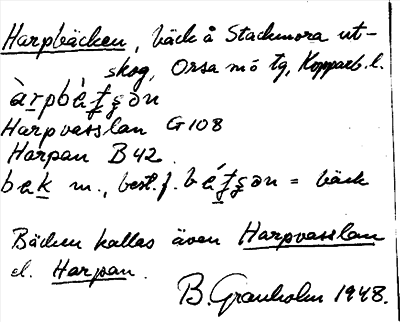 Harpbäcken, bäck å Stackmora ut-
skog, Orsa sn ö tg, Kopparb. l.
Harpvasslan G108
Harpan B42
bek m., best. f. = bäck
Bäcken kallas även Harpvasslan
el. Harpan.
B. Granholm 1948.